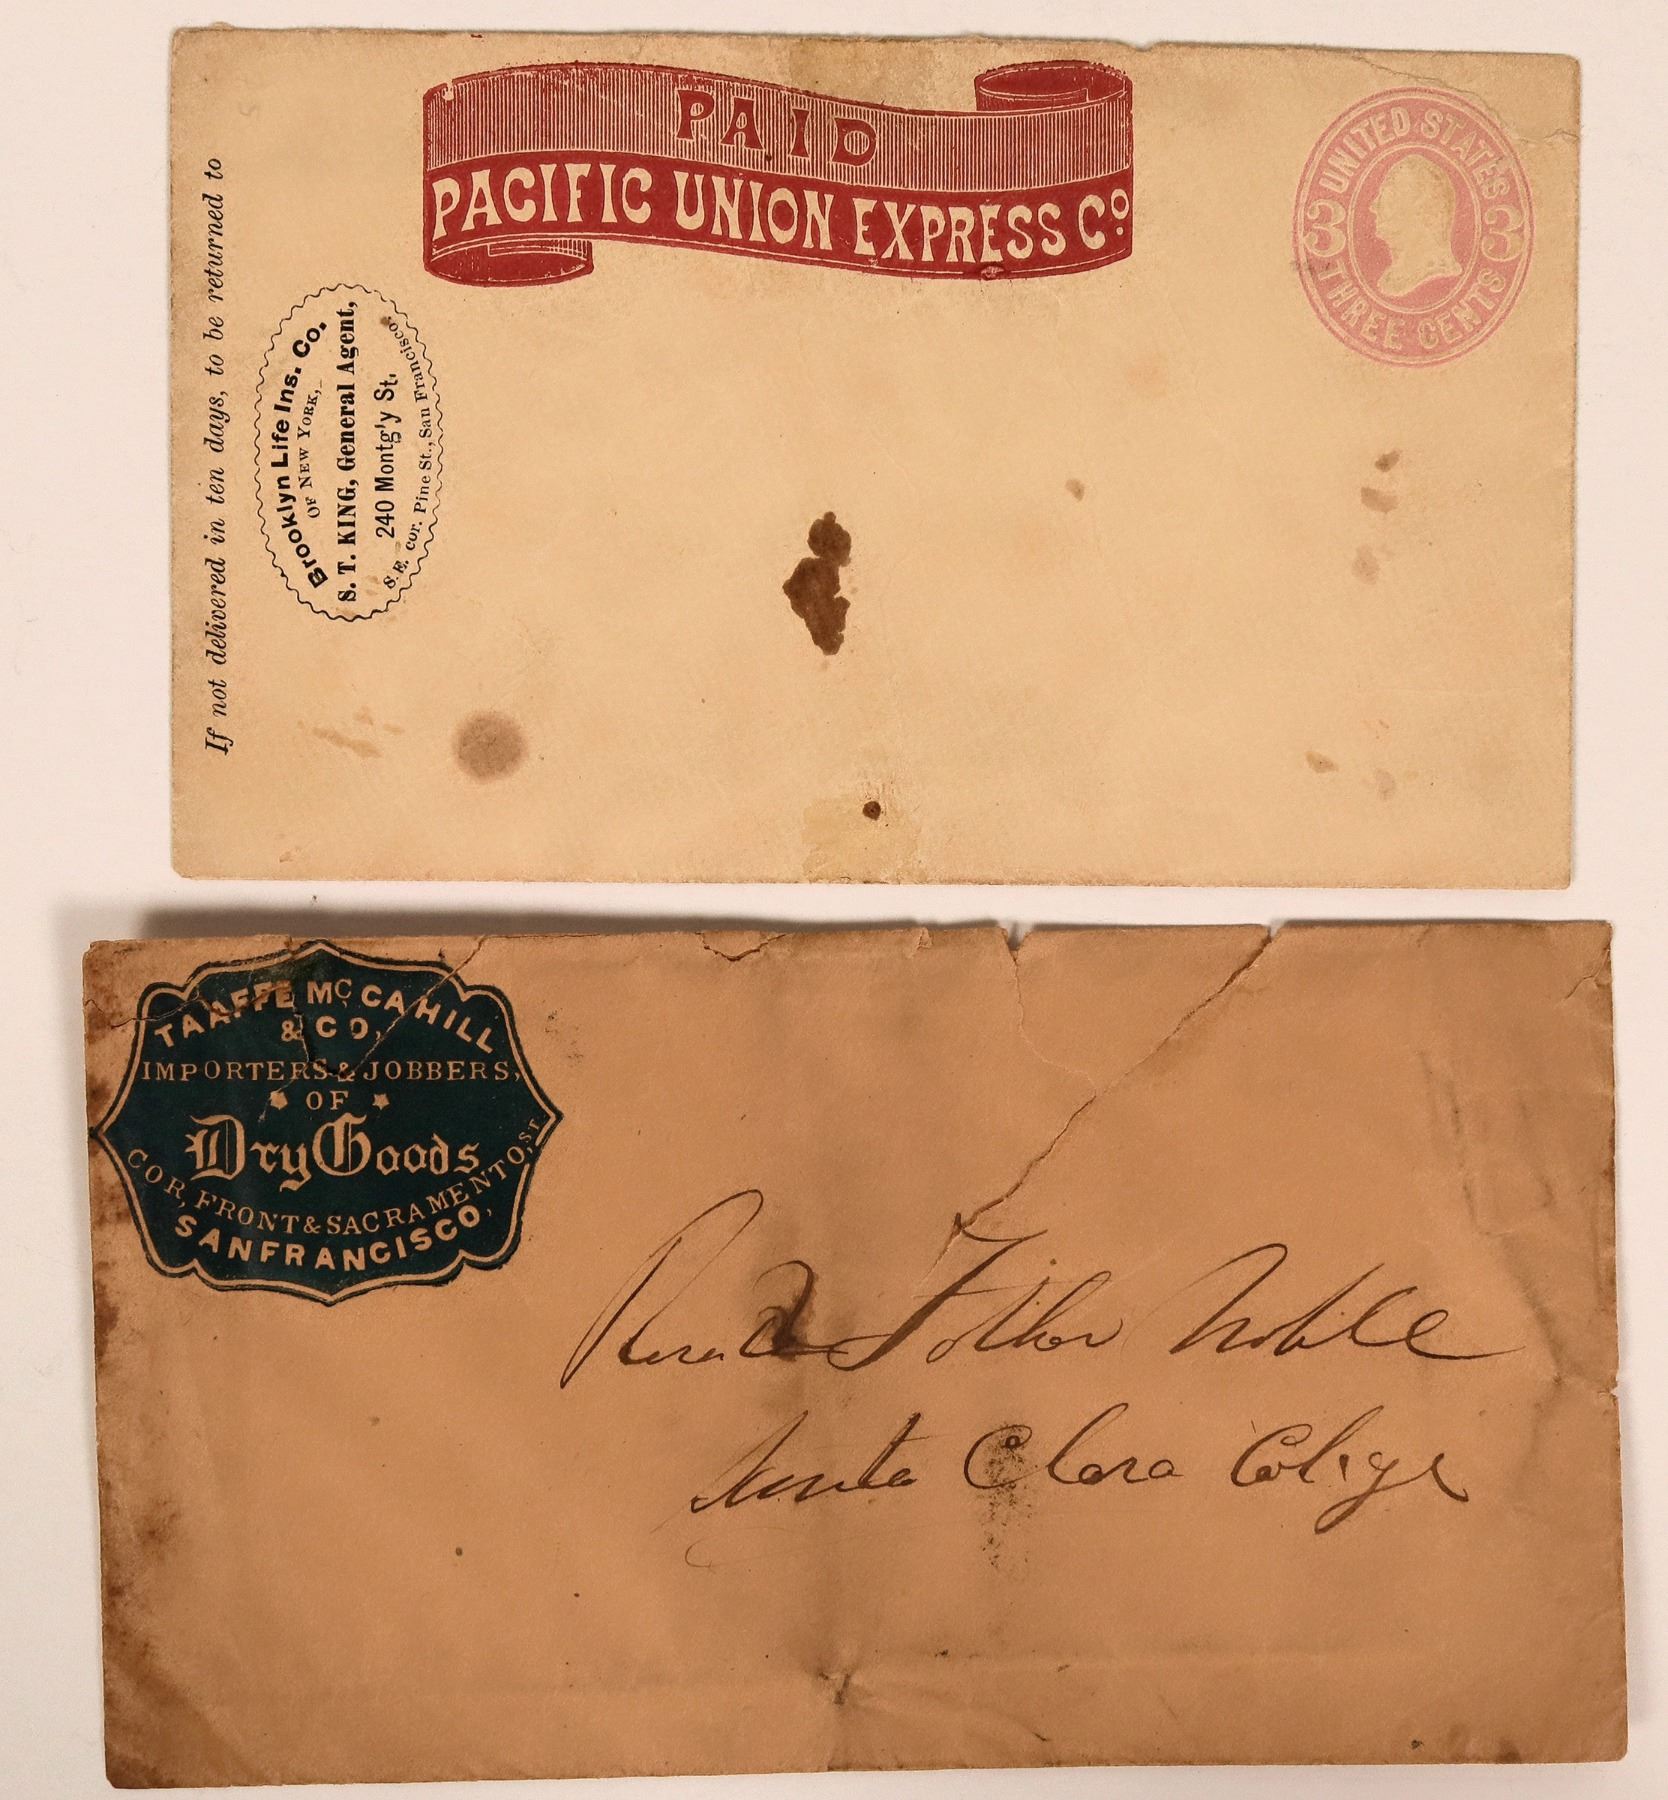 PAID
PACIFIC UNION EXPRESS Co.
UNITED STATES
3 3
THREE CENTS
If not delivered in ten days, to be returned to
Brooklyn Life Ins. Co.
OF NEW YORK,
S. T. KING, General Agent,
240 Montg'y St.
S. E. cor. Pine St., San Francisco.
TAAFFE Mc CAHILL
& CO,
IMPORTERS & JOBBERS,
OF
Dry Goods
COR, FRONT & SACRAMENTO, ST.
SAN FRANCISCO,
Revd Father Nobile
Santa Clara Colege